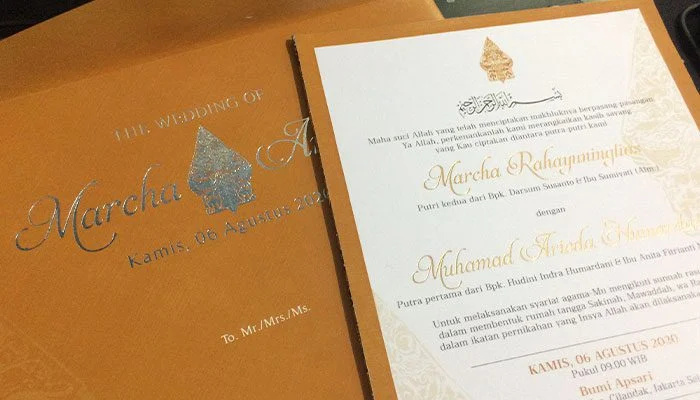 THE WEDDING OF
Marcha
Kamis, 06 Agustus 2020
To. Mr./Mrs./Ms.
بسم الله الرحمن الرحيم
Maha suci Allah yang telah menciptakan makhluknya berpasang pasangan
Ya Allah, perkenankanlah kami merangkaikan kasih sayang
yang Kau ciptakan diantara putra-putri kami
Marcha Rahayuningtias
Putri kedua dari Bpk. Darsum Susanto & Ibu Sumiyati (Alm.)
dengan
Muhamad Arioda
Putra pertama dari Bpk. Hudini Indra Humardani & Ibu Anita Fitrianti
Untuk melaksanakan syariat agama Mu mengikuti sunnah
dalam membentuk rumah tangga Sakinah, Mawaddah, wa
dalam ikatan pernikahan yang Insya Allah akan dilaksanakan
KAMIS, 06 AGUSTUS 2020
Pukul 09.00 WIB
Bumi Apsari
Cilandak, Jakarta